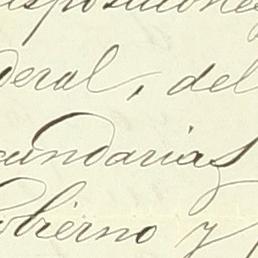 isposiciones
deral, del
cundarias
obierno y